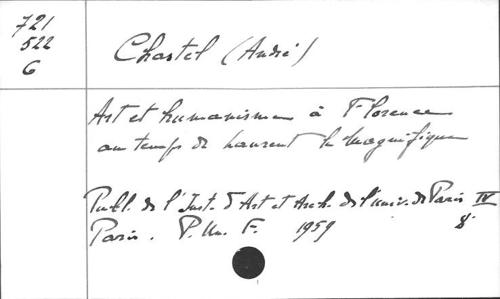 721
522
G
Chastel (André)
Art et humanisme à Florence
au temps de Laurent le Magnifique
Publ. de l'Inst. d'Art et Arch. de l'Univ. de Paris IV
Paris. P. Un. F. 1959 8°